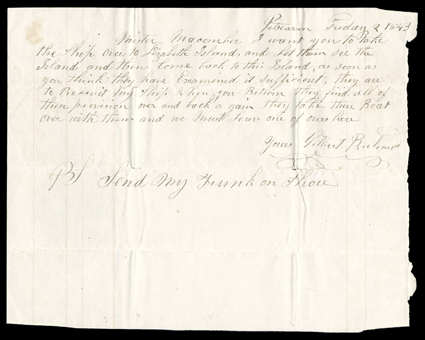 Pitcairn Friday 2 1843
Mister Macomber I want you to take
the Ship over to Elizabeth Island, and let them see the
Island, and then Come back to this Island, as soon as
you think they have Examined it Sufficient, they are
to my Ship when you Return they find all of
their provision over and back a gain they take their Boat
over with them and we must leave one of ours here
Yours Gilbert
PS Send My Trunk on Shore